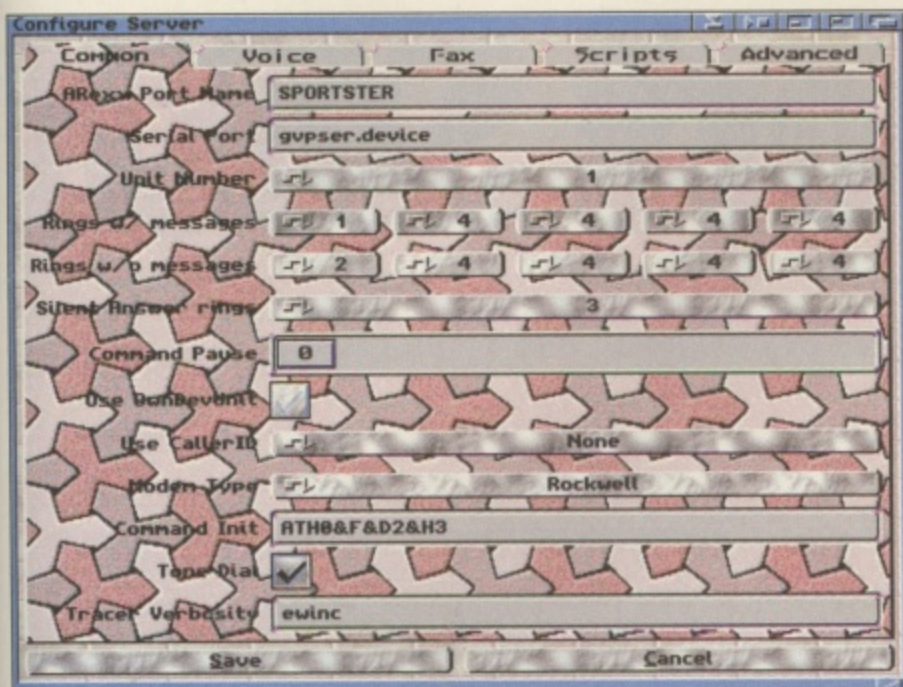 Configure Server
Common Voice Fax Scripts Advanced
ARexx Port Name SPORTSTER
Serial Port gvpser.device
Unit Number 1
Rings w/ messages 1 4 4 4 4
Rings w/o messages 2 4 4 4 4
Silent Answer rings 3
Command Pause 0
Use OwnDevUnit
Use CallerID None
Modem Type Rockwell
Command Init ATH0&F&D2&H3
Tone Dial
Tracer Verbosity ewinc
Save Cancel